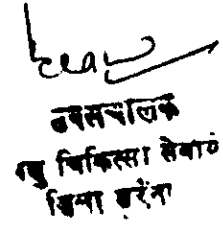 उपसंचालक
पशु चिकित्सा सेवायें
जिला मुरैना